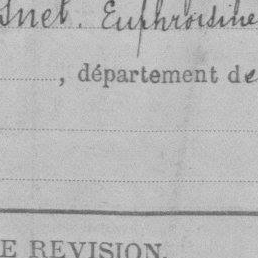 snet. Euphroisine
, département de
E REVISION.